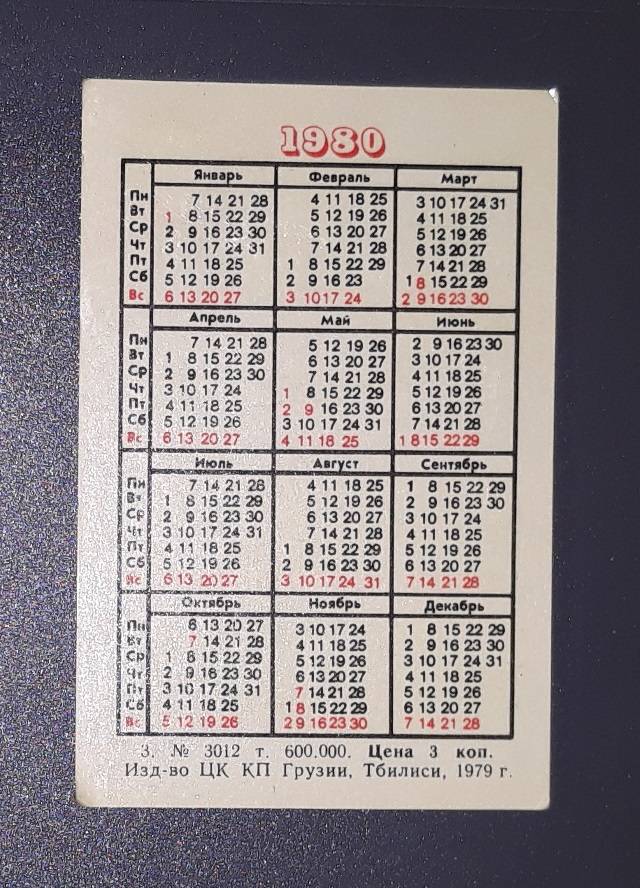 1980
Январь Февраль Март
Пн 7 14 21 28 4 11 18 25 3 10 17 24 31
Вт 1 8 15 22 29 5 12 19 26 4 11 18 25
Ср 2 9 16 23 30 6 13 20 27 5 12 19 26
Чт 3 10 17 24 31 7 14 21 28 6 13 20 27
Пт 4 11 18 25 1 8 15 22 29 7 14 21 28
Сб 5 12 19 26 2 9 16 23 1 8 15 22 29
Вс 6 13 20 27 3 10 17 24 2 9 16 23 30
Апрель Май Июнь
Пн 7 14 21 28 5 12 19 26 2 9 16 23 30
Вт 1 8 15 22 29 6 13 20 27 3 10 17 24
Ср 2 9 16 23 30 7 14 21 28 4 11 18 25
Чт 3 10 17 24 1 8 15 22 29 5 12 19 26
Пт 4 11 18 25 2 9 16 23 30 6 13 20 27
Сб 5 12 19 26 3 10 17 24 31 7 14 21 28
Вс 6 13 20 27 4 11 18 25 1 8 15 22 29
Июль Август Сентябрь
Пн 7 14 21 28 4 11 18 25 1 8 15 22 29
Вт 1 8 15 22 29 5 12 19 26 2 9 16 23 30
Ср 2 9 16 23 30 6 13 20 27 3 10 17 24
Чт 3 10 17 24 31 7 14 21 28 4 11 18 25
Пт 4 11 18 25 1 8 15 22 29 5 12 19 26
Сб 5 12 19 26 2 9 16 23 30 6 13 20 27
Вс 6 13 20 27 3 10 17 24 31 7 14 21 28
Октябрь Ноябрь Декабрь
Пн 6 13 20 27 3 10 17 24 1 8 15 22 29
Вт 7 14 21 28 4 11 18 25 2 9 16 23 30
Ср 1 8 15 22 29 5 12 19 26 3 10 17 24 31
Чт 2 9 16 23 30 6 13 20 27 4 11 18 25
Пт 3 10 17 24 31 7 14 21 28 5 12 19 26
Сб 4 11 18 25 1 8 15 22 29 6 13 20 27
Вс 5 12 19 26 2 9 16 23 30 7 14 21 28
З. № 3012 т. 600.000. Цена 3 коп.
Изд-во ЦК КП Грузии, Тбилиси, 1979 г.